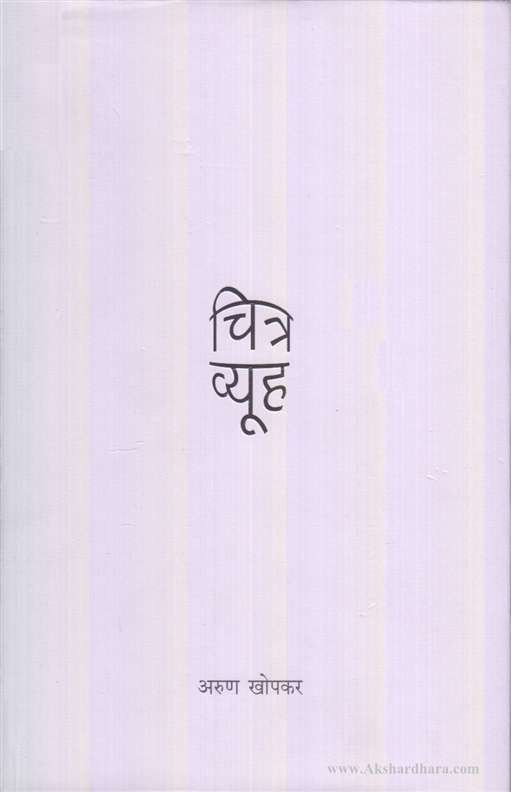 चित्र
व्यूह
अरुण खोपकर
www.Akshardhara.com